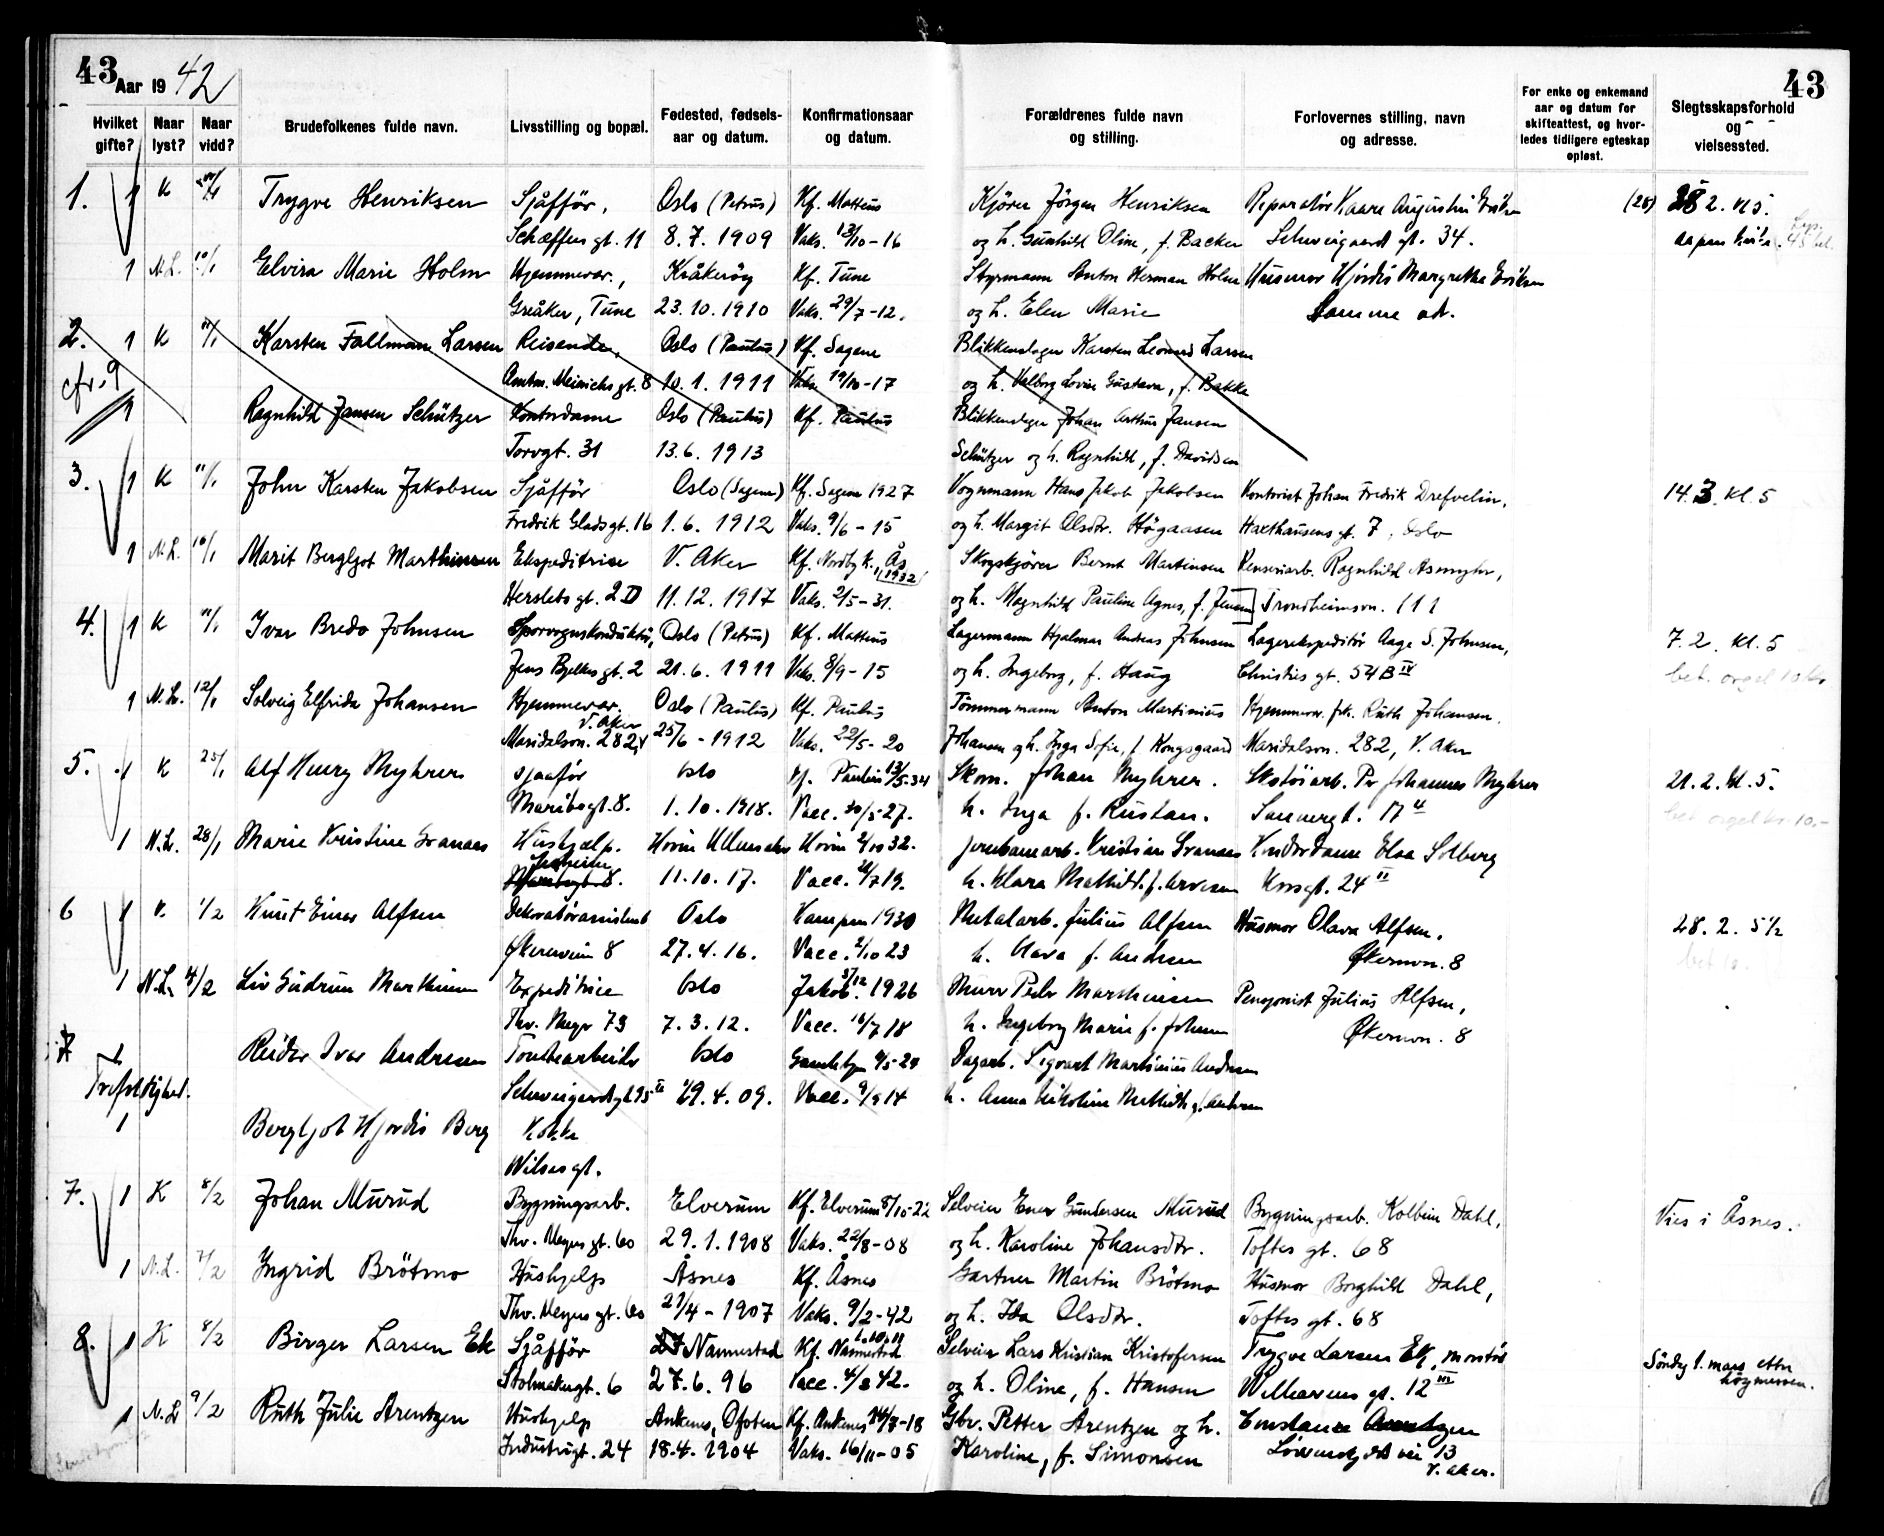 43
Aar 19 42
43
Hvilket gifte?
Naar lyst?
Naar vidd?
Brudefolkenes fulde navn.
Livsstilling og bopæl.
Fødested, fødsels-
aar og datum.
Konfirmationsaar
og datum.
Forældrenes fulde navn
og stilling.
Forlovernes stilling, navn
og adresse.
For enke og enkemand
aar og datum for
skifteattest, og hvor-
ledes tidligere egteskap
opløst.
Slegtsskapsforhold
og
vielsessted.
1. 1 K Trygve Henriksen Sjåfför, Oslo (Petrus) Kf. Matteus Kjörer Jörgen Henriksen Reparatör Kaare (28) 28 2. kl 5.
Schæffers gt. 11 8. 7. 1909 Vaks. 13/10 - 16 og h. Gunhild Oline, f. Backer Schweigaards gt. 34.
1 N.L. 10/1 Elvira Marie Holm Hjemmevær., Kråkeröy Kf. Tune Styrmann Anton Herman Holm Husmor Hjördis Margrethe Eriksen
Greåker, Tune 23. 10. 1910 Vaks. 29/7 - 12. og h. Elen Marie Samme ad.
2. 1 K Karsten Fallman Larsen Reisende, Oslo (Paulus) Kf. Sagene Blikkenslager Karsten Leonard Larsen
cfr. 9 Amtm. Meinichs gt. 8 10. 1. 1911 Vaks. 19/10 - 17 og h. Valborg Lovise Gustava, f. Bakke
1 Ragnhild Jansen Schützer Kontordame Oslo (Paulus) Kf. Paulus Blikkenslager Johan Arthur Jansen
Torvgt. 31 13. 6. 1913 Schützer og h. Ragnhild, f. Davidsen
3. 1 K 11/1 John Karsten Jakobsen Sjåfför Oslo (Sagene) Kf. Sagene 1927 Vognmann Hans Jakob Jakobsen Kontorist Johan Fredrik Drefvelin, 14. 3. kl. 5
Fredrik Glads gt. 16 1. 6. 1912 Vaks. 9/6 - 15 og h. Margit Olsdtr. Högaasen Haxthausens gt. 7, Oslo
1 N.L. 10/1 Marit Bergljot Marthinsen Ekspeditrise V. Aker Kf. Nordby k. Ås 1932 Skogskjörer Bernt Martinsen Renseriarb. Ragnhild Asmyhr,
Herslebs gt. 2 D 11. 12. 1917 Vaks. 2/5 - 31. og h. Magnhild Pauline Agnes, f. Jensen Trondheimsvn. 111
4. 1 K 11/1 Ivar Bredo Johnsen Sporvognskonduktör, Oslo (Petrus) Kf. Matteus Lagermann Hjalmar Andreas Johnsen Lagerekspeditör Aage S. Johnsen, 7. 2. kl. 5
Jens Bjelkes gt. 2 21. 6. 1911 Vaks. 8/9 - 15 og h. Ingeborg, f. Haug Christies gt. 54 B IV bet. orgel 10 kr
1 N.L. 12/1 Solveig Elfrida Johansen Hjemmevær. Oslo (Paulus) Kf. Paulus Tömmermann Anton Martinius Hjemmevær. frk. Ruth Johansen.
V. Aker
Maridalsvn. 282, 25/6 - 1912 Vaks. 22/5 - 20 Johansen og h. Inga Sofie, f. Kongsgaard Maridalsvn. 282, V. Aker
5. 1 K 25/1 Alf Henry Myhrer sjaafør Oslo Kf. Paulus 13/5-34 Skom. Johan Myhrer. Skotöiarb. Per Johannes Myhrer 21. 2. kl. 5.
Maribogt. 8. 1. 10. 1918. Vacc. 20/5-27. h. Inga f. Rustan. Sannergt. 17 4 bet orgel kr. 10.-
1 N.L. 28/1 Marie Kristine Granaas Hushjelp. Hovin Ullensaker Hovin 2/10 32. jernbanearb. Kristian Granaas Kontordame Elsa Solberg
11. 10. 17. Vacc. 21/7 19. h. Klara Mathild. f. Arvesen Korsgt. 24 II
6 1 K. 1/2 Knut Einar Alfsen Dekoratörassistent Oslo Kampen 1930 Metalarb. Julius Alfsen Husmor Olava Alfsen. 28. 2. 5 1/2
Økernveien 8 27. 4. 16. Vacc. 2/10 23 h. Olava f. Andersen Økernvn. 8 bet 10.
1 N.L. 4/2 Liv Gudrun Marthinsen Expeditrice Oslo Jakob. 1926 Murer Peder Marthinsen Pensjonist Julius Alfsen,
Thv. Meyer 73 7. 3. 12. Vacc. 16/7 18 h. Ingeborg Marie f. Johnsen Økernvn. 8
1 Reidar Ivar Andersen Tomtearbeider Oslo Gamlebyen 4/5-24 Dagarb. Sigvart Martinius Andersen
29. 4. 09. Vacc. 9/9 14 h. Anna Nikoline Mathilde f. Andersen
1 Bergljot Hjørdis Berg Kokke
Wilsesgt.
7. 1 K 8/2 Johan Murud Bygningsarb. Elverum Kf. Elverum 8/10-22 Selveier Ener Gundersen Murud Bygningsarb. Kolbein Dahl, Vies i Åsnes.
Thv. Meyers gt. 60 29. 1. 1908 Vaks. 22/8 - 08 og h. Karoline Johansdtr. Toftes gt. 68
1 N.L. 7/2 Ingrid Brötmo Hushjelp Åsnes Kf. Åsnes Gartner Martin Brötmo Husmor Borghild Dahl,
Thv. Meyers gt. 60 21/4 - 1907 Vaks. 9/2 - 42 og h. Ida Olsdtr. Toftes gt. 68
8. 1 K 8/2 Birger Larsen Ek Sjåfför Nannestad Kf. Nannestad 1.10.11 Selveier Lars Kristian Kristofersen Trygve Larsen Ek, montör Söndg 1. mars etter högmessen.
Stolmakergt. 6 27. 6. 96 Vacc. 4/2 42. og h. Oline, f. Hansen Wilhelmsens gt. 12 III
1 N.L 9/2 Ruth Julie Arentzen Hushjelp Ankenes, Ofoten Kf. Ankenes -18 Gbr. Petter Arentzen og h. Constance Arentzen
Industrigt. 24 18. 4. 1904 Vaks. 16/11 - 05 Karoline, f. Simonsen vei 13
V. Aker.